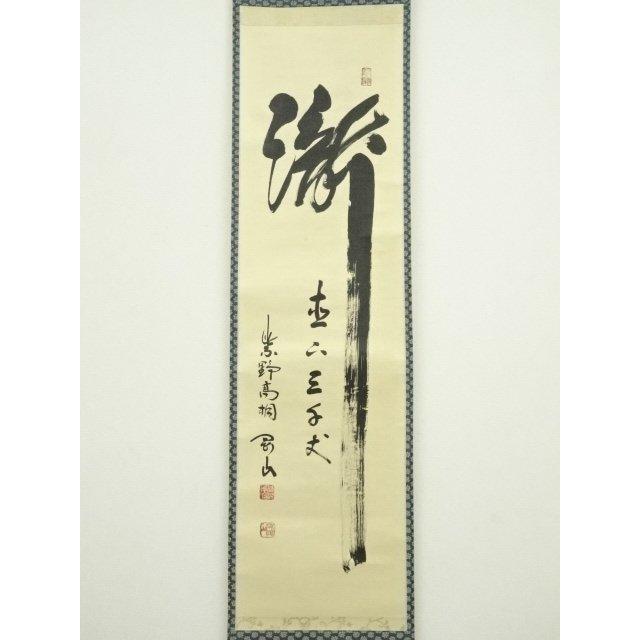 瀧
直下三千丈
紫野高桐 剛山